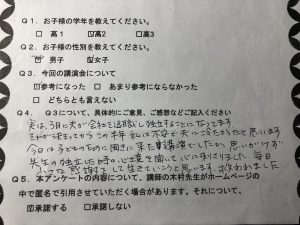 Q1．お子様の学年を教えてください。
□ 高1 ☑高2 □高3
Q2．お子様の性別を教えてください。
□ 男子 ☑女子
Q3．今回の講演会について
☑参考になった □ あまり参考にならなかった
□ どちらとも言えない
Q4．Q3について、具体的にご意見、ご感想などご記入ください
実は、3月に夫が会社を退職し独立することになってます。
それが決まってからこの半年 私は不安で夫につらくあたったと思います
今日は子どものために聞きに来た講演でしたが、思いがけず
先生の独立した時の心境を聞いて心にすりました。毎日
小さな感謝をして生きていこうと思います。救われました
Q5．本アンケートの内容について、講師の木村先生がホームページの
中で匿名で引用させていただく場合があります。それについて、
☑承諾する □承諾しない